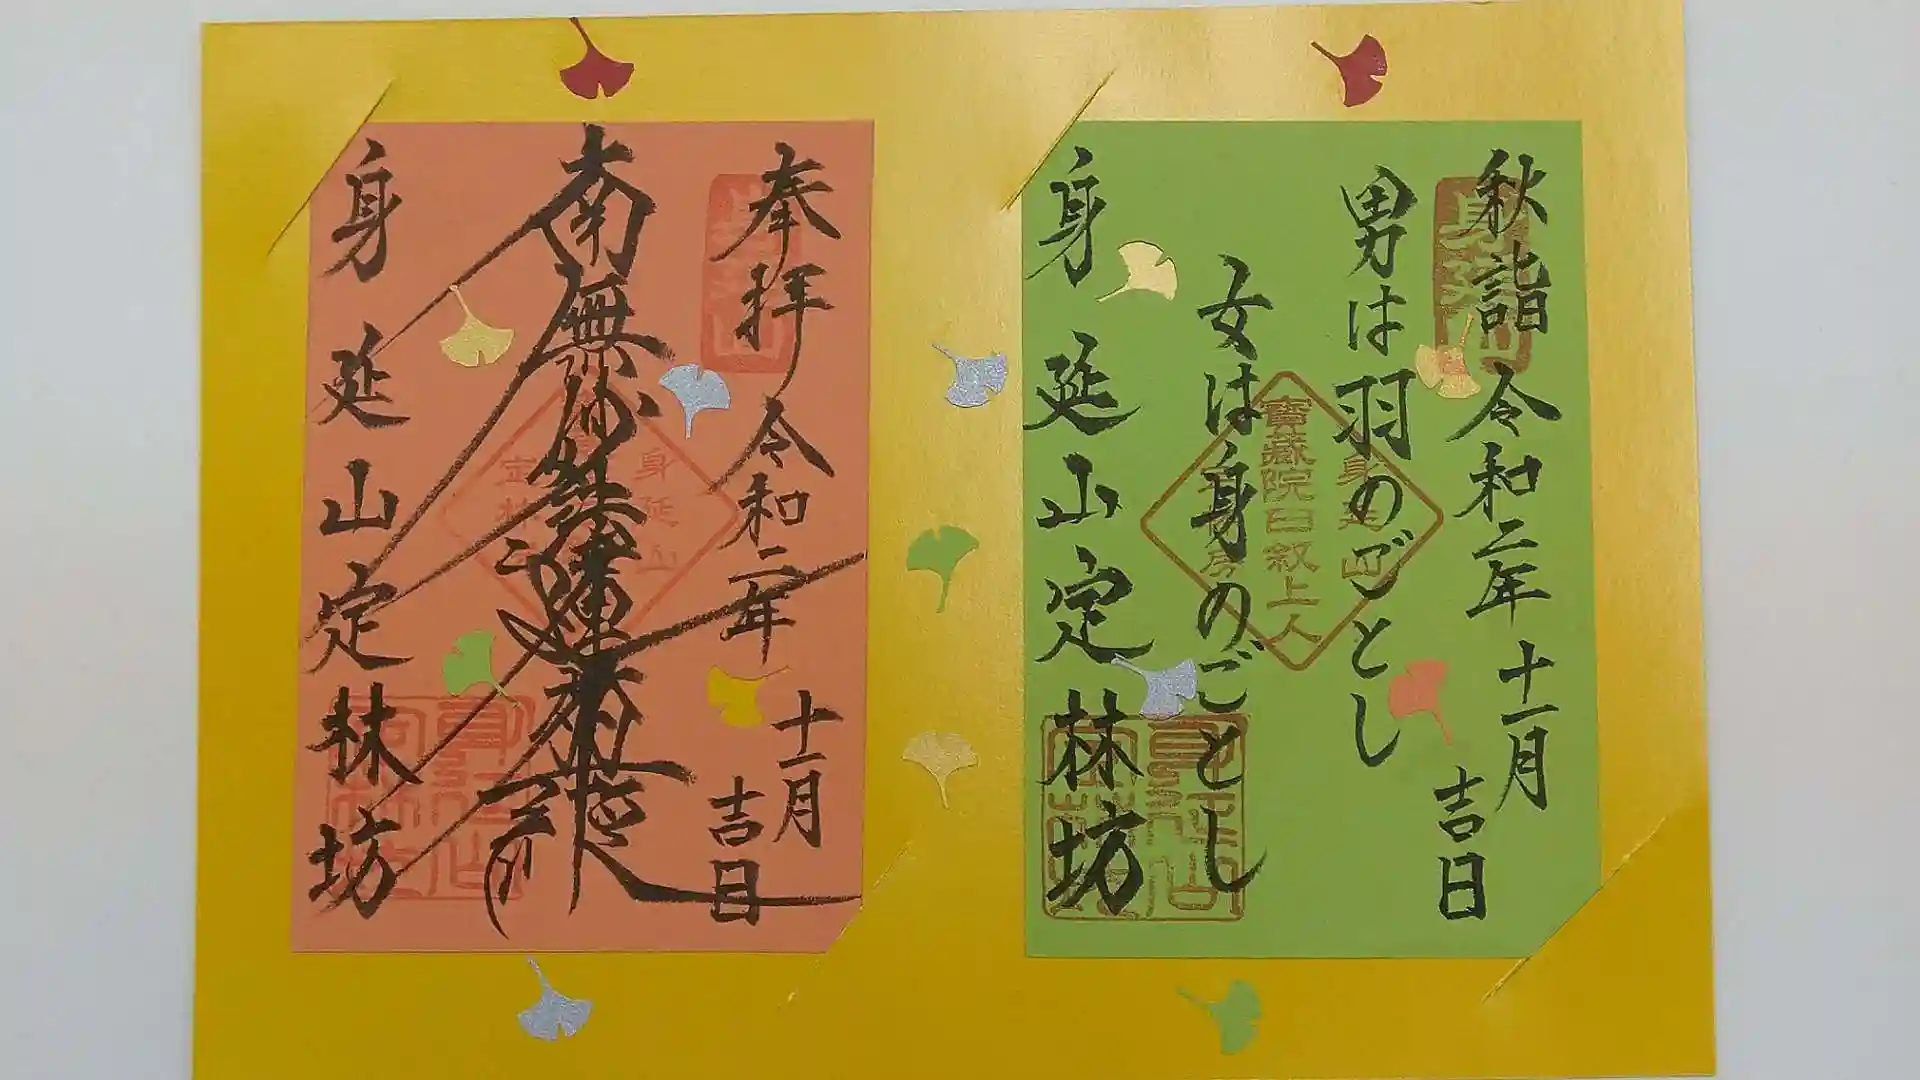 秋詣 令和二年 十一月 吉日
男は羽のごとし
女は身のごとし
身延山 定林坊
身延山
寶蔵院日叙上人
奉拝 令和二年 十一月 吉日
南無妙法蓮華経
身延山 定林坊
身延山